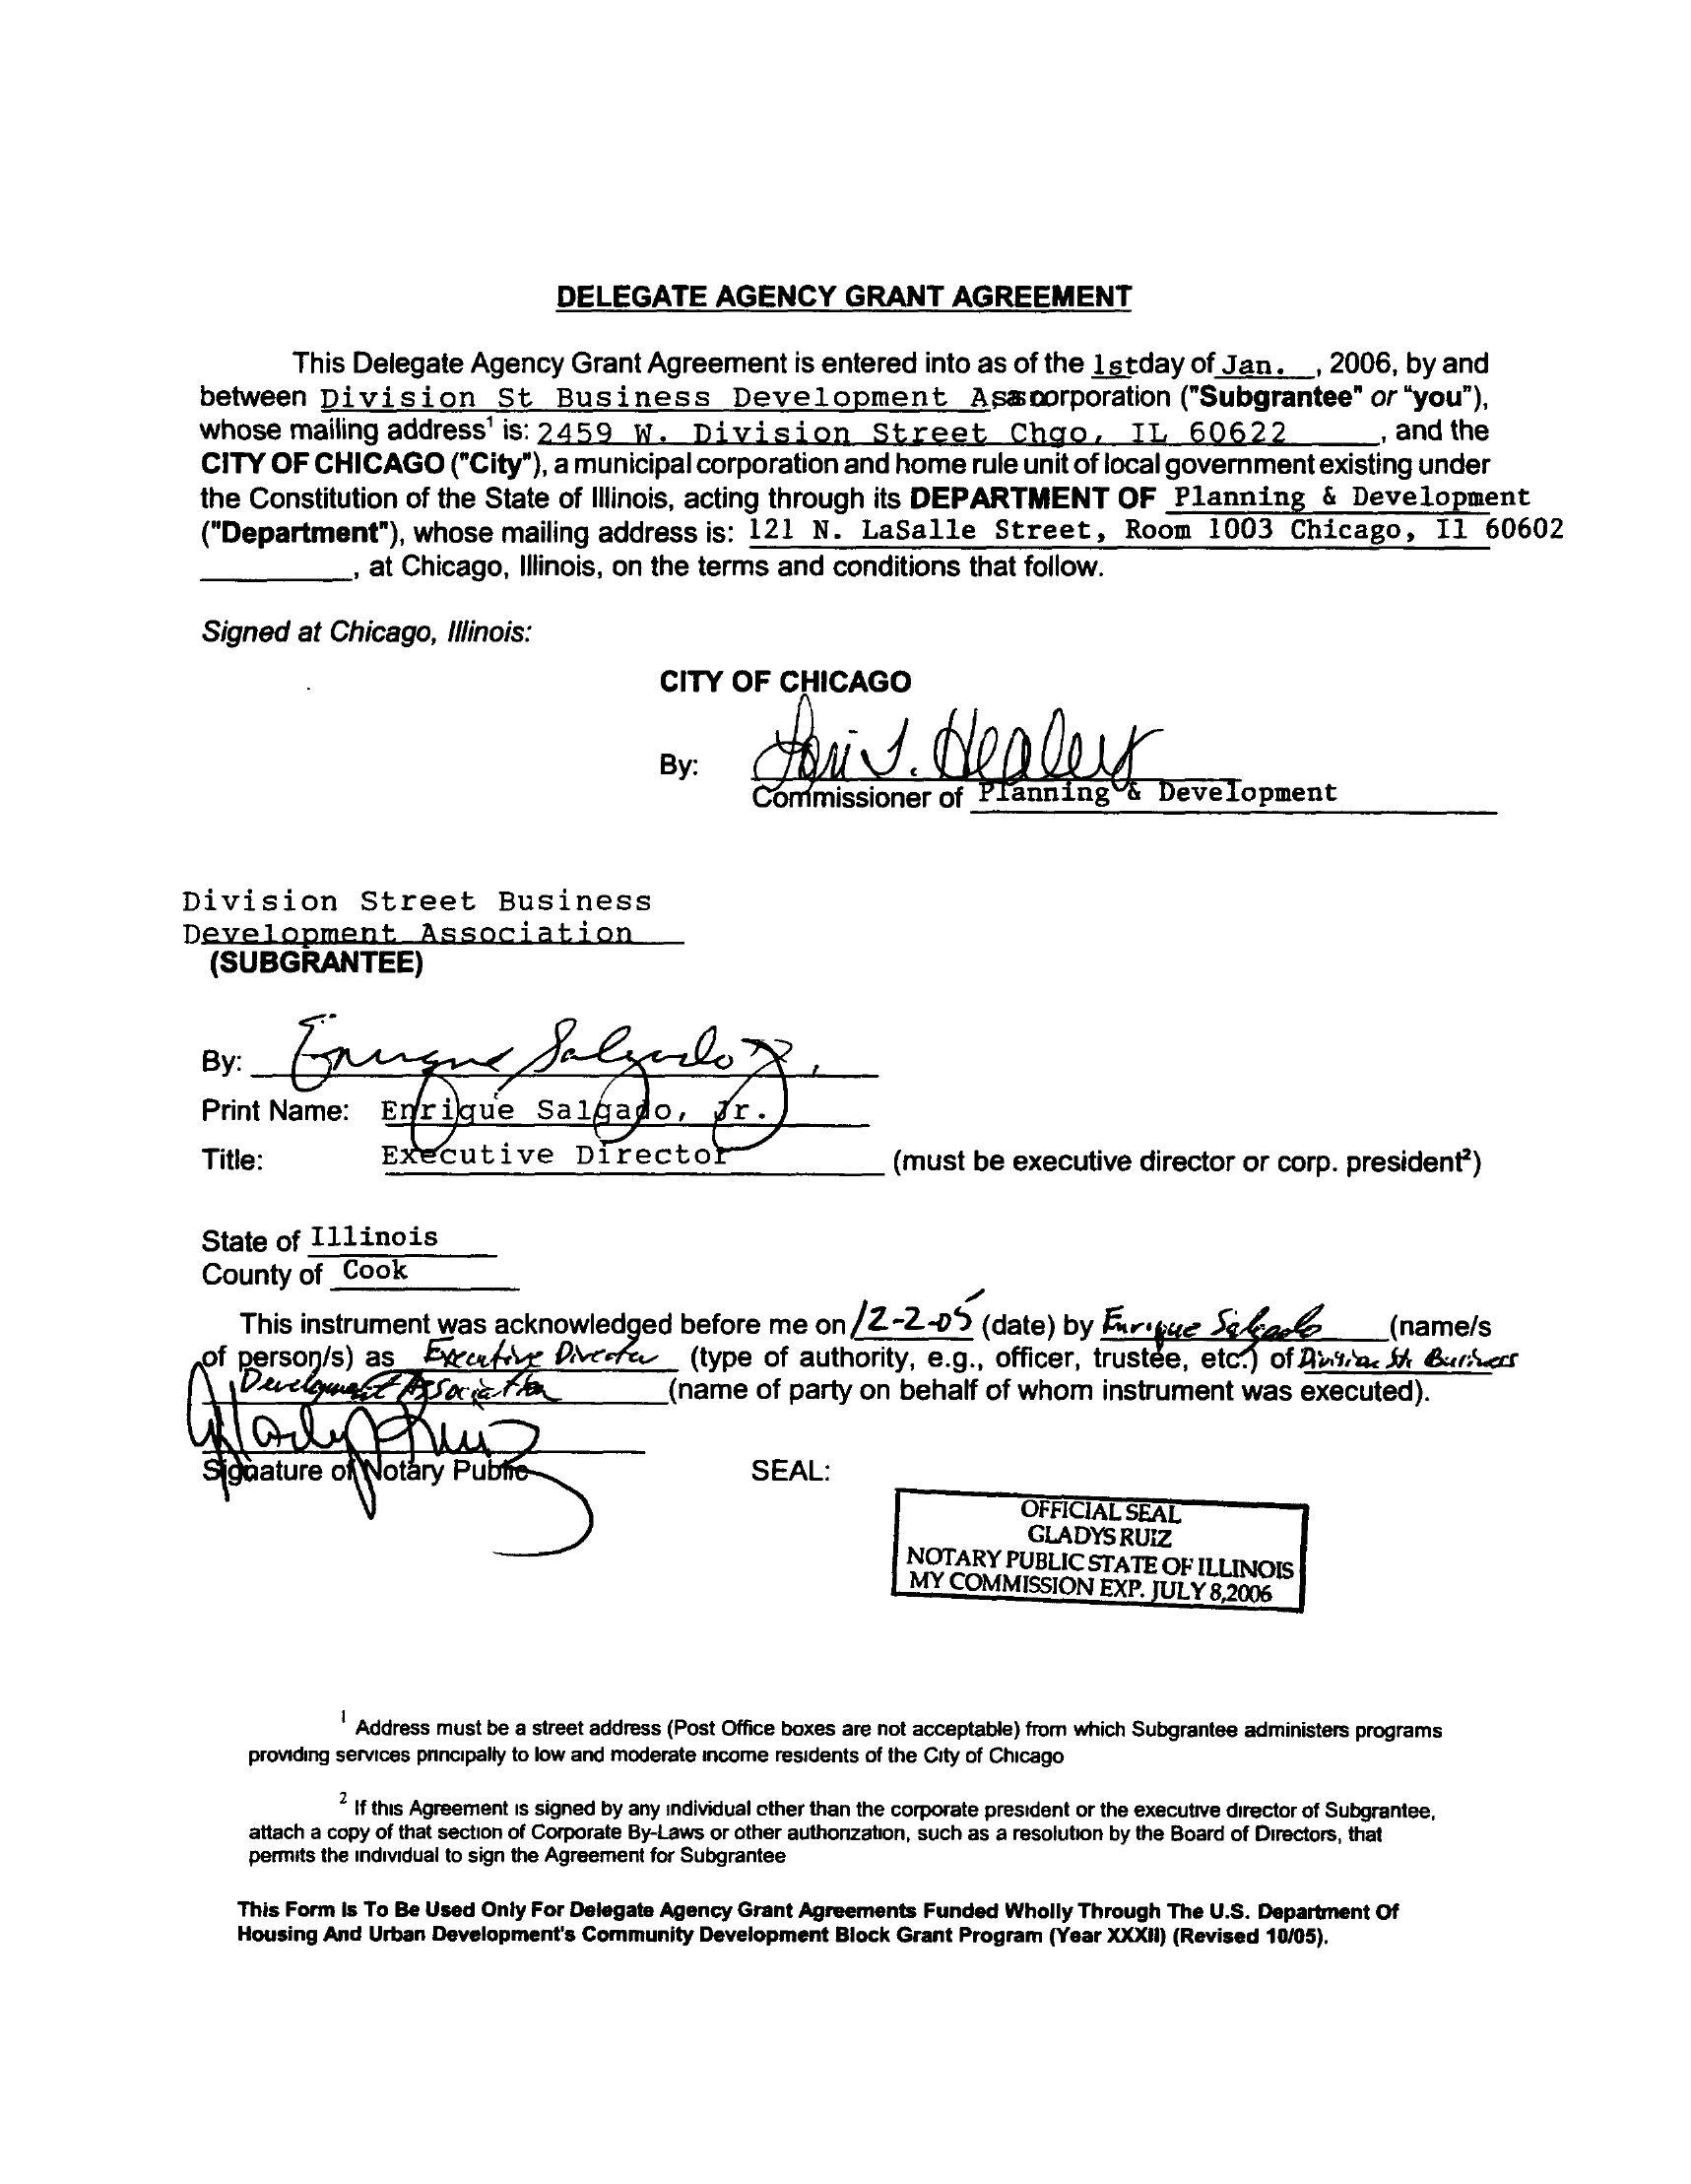 DELEGATE AGENCY GRANT AGREEMENT
This Delegate Agency Grant Agreement is entered into as of the 1st day of Jan. , 2006, by and
between Division St Business Development Ass corporation ("Subgrantee" or "you"),
whose mailing address¹ is: 2459 W. Division Street Chgo, IL 60622 , and the
CITY OF CHICAGO ("City"), a municipal corporation and home rule unit of local government existing under
the Constitution of the State of Illinois, acting through its DEPARTMENT OF Planning & Development
("Department"), whose mailing address is: 121 N. LaSalle Street, Room 1003 Chicago, Il 60602
, at Chicago, Illinois, on the terms and conditions that follow.
Signed at Chicago, Illinois:
CITY OF CHICAGO
By: Lori T. Healey
Commissioner of Planning & Development
Division Street Business
Development Association
(SUBGRANTEE)
By: Enrique Salgado Jr.
Print Name: Enrique Salgado, Jr.
Title: Executive Director (must be executive director or corp. president²)
State of Illinois
County of Cook
This instrument was acknowledged before me on 12-2-05 (date) by Enrique Salgado (name/s
of person/s) as Executive Director (type of authority, e.g., officer, trustee, etc.) of Division St. Business
Development Association (name of party on behalf of whom instrument was executed).
Gladys Ruiz
Signature of Notary Public SEAL:
OFFICIAL SEAL
GLADYS RUIZ
NOTARY PUBLIC STATE OF ILLINOIS
MY COMMISSION EXP. JULY 8,2006
¹ Address must be a street address (Post Office boxes are not acceptable) from which Subgrantee administers programs
providing services principally to low and moderate income residents of the City of Chicago
² If this Agreement is signed by any individual other than the corporate president or the executive director of Subgrantee,
attach a copy of that section of Corporate By-Laws or other authorization, such as a resolution by the Board of Directors, that
permits the individual to sign the Agreement for Subgrantee
This Form Is To Be Used Only For Delegate Agency Grant Agreements Funded Wholly Through The U.S. Department Of
Housing And Urban Development's Community Development Block Grant Program (Year XXXII) (Revised 10/05).